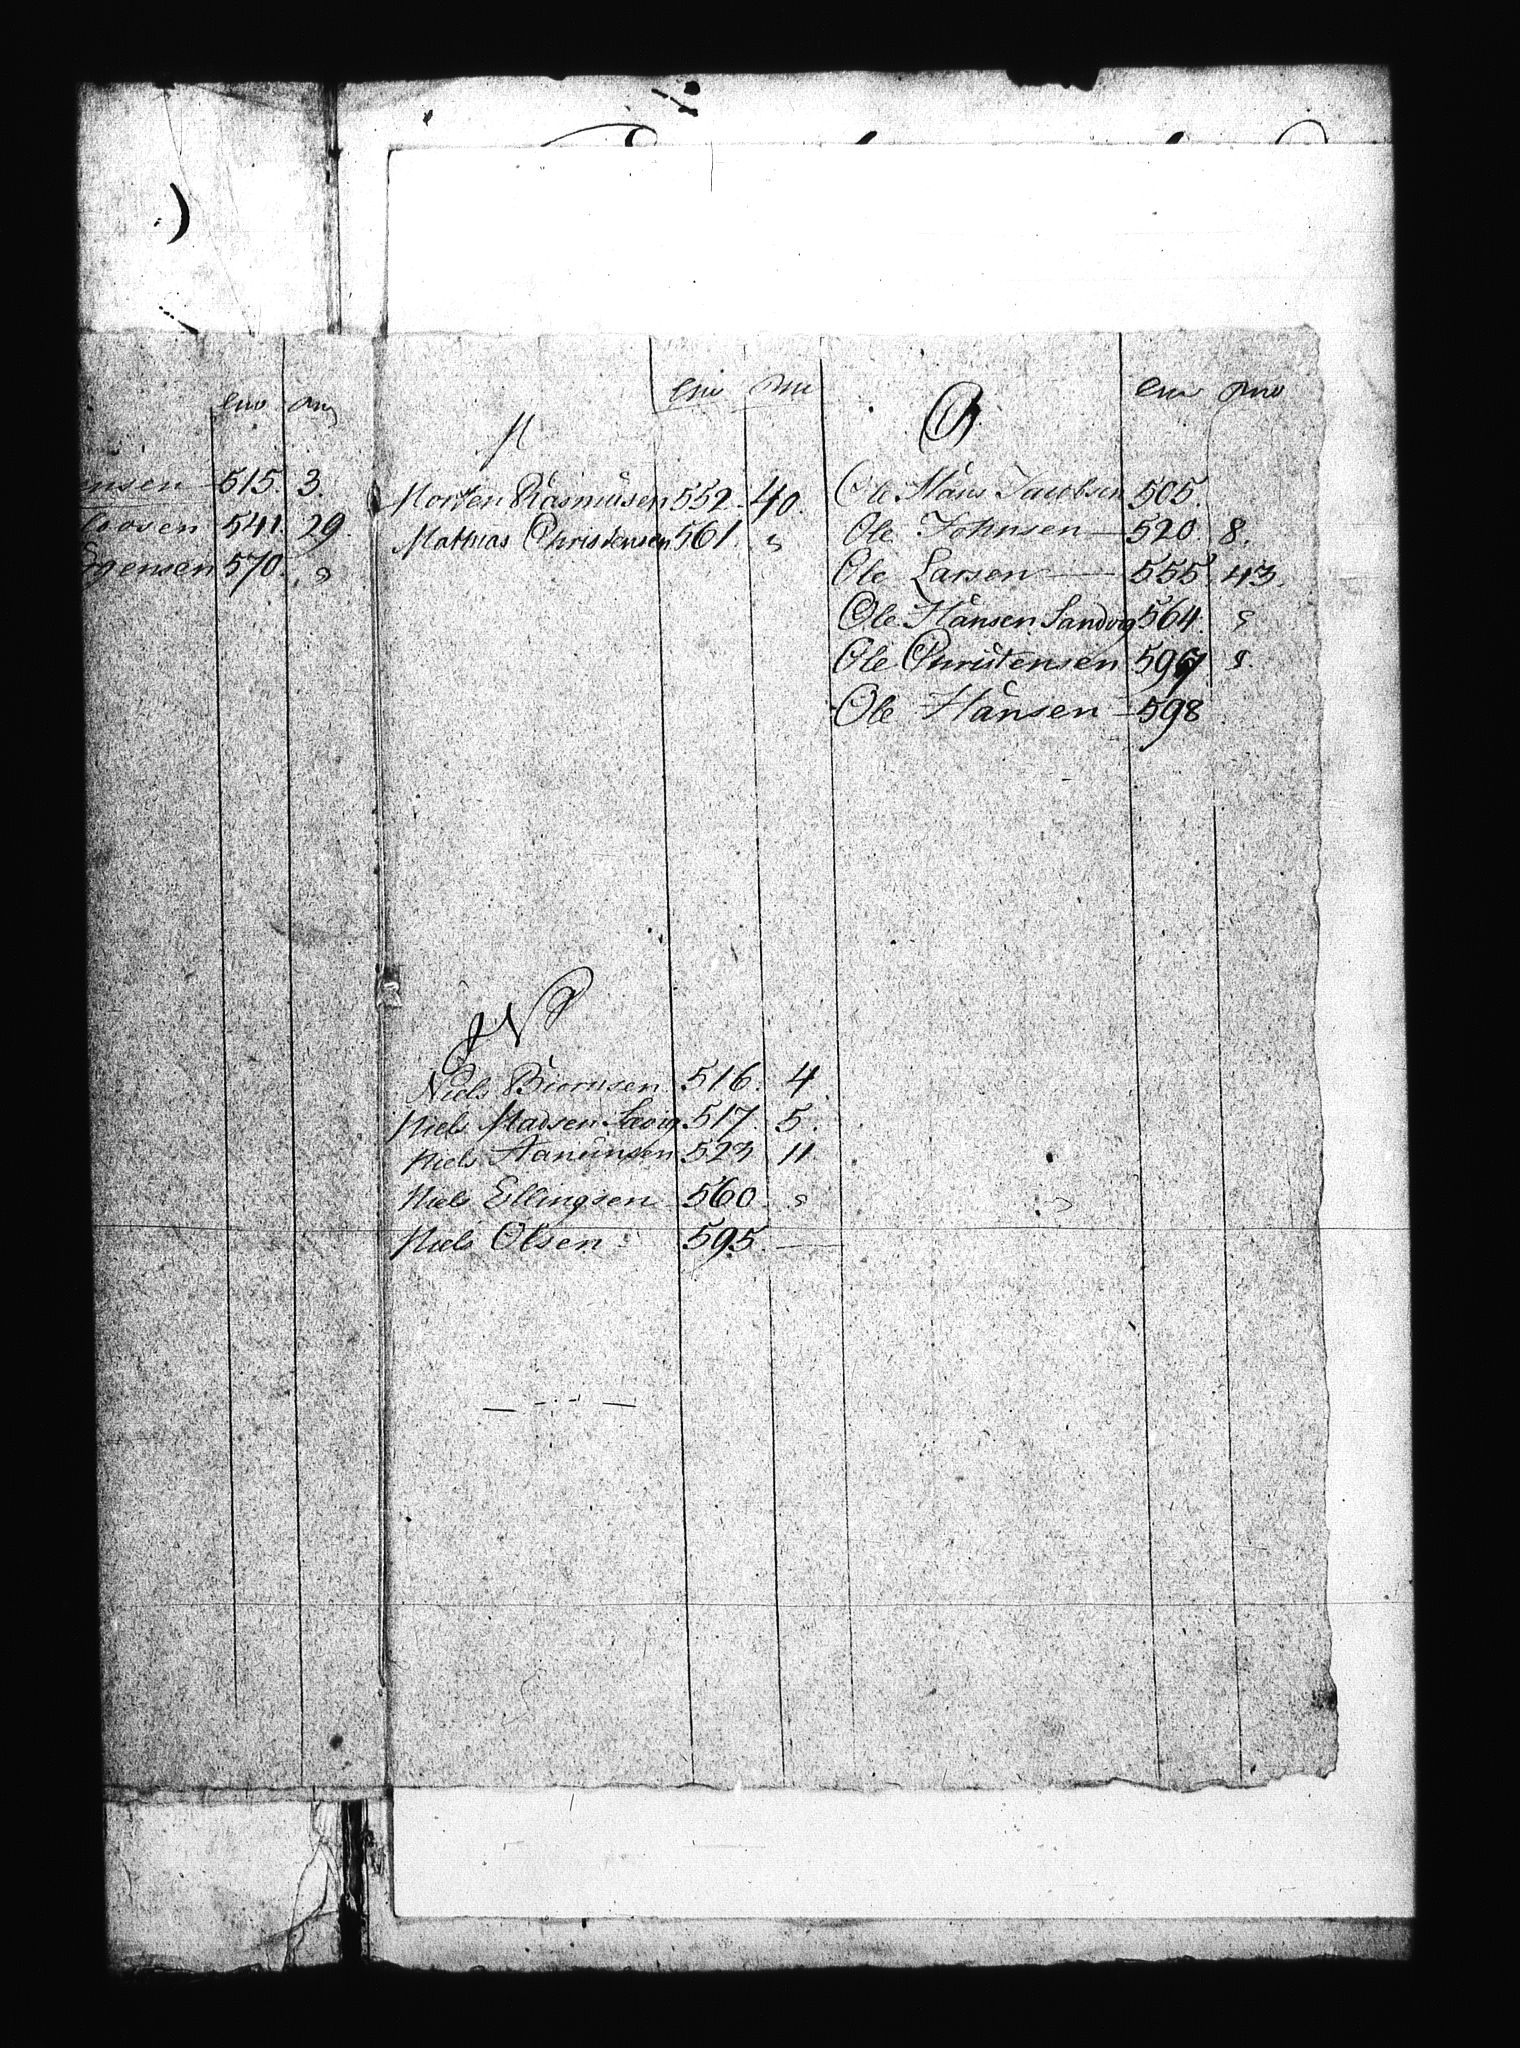 ensen 515. 3.
541. 29.
rgensen 570.
M
Morten Rasmusen 552. 40.
Mathias Christensen 561. "
N
Niels Biørnsen 516. 4
Niels Madsen Savig 517. 5.
Niels Aanunsen 523 11
Niels Ellingsen 560. "
Niels Olsen 595. —
O
Ole Hans Jacobsen 505.
Ole Johnsen — 520. 8.
Ole Larsen — 555. 43.
Ole Hansen Sandvig 564. "
Ole Christensen 597. "
Ole Hansen — 598